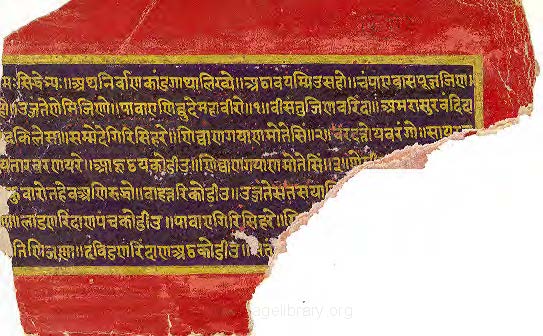 अथनिर्वाणकांडगाथालिख्ये॥अठावयम्मिउसहो॥चंपाएवासपूजजिण
उजंतेणेमिजिणो॥पावाएणिवुदेमहावीरो॥१॥वीसंतुजिणवरिंदा॥अमरासुरवंदिदा
वकिलेसा॥सम्मेदेगिरिसिहरे॥णिव्वाणगयाणमोतेसिं॥२॥वरदत्तोयवरंगो॥सायर
यतारवरणयरे॥आहुठयकोडीउ॥णिव्वाणगयाणमोतेसिं॥३॥
बुवारोतहेवअणिरुद्धो॥वाहतरिकोडीउ॥उजंतेसतसया
लाडणरिंदाणपंचकोडीउ॥पावाएगिरिसिहरे॥
तिणिजणा॥दविडणरिंदाणअठकोडीउ॥
agelibrary.org